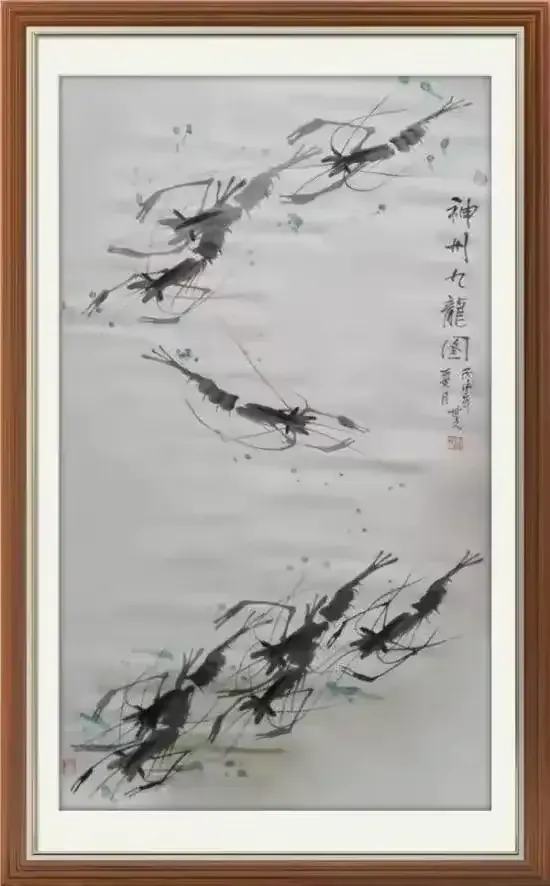 神州九龍圖
丙申年
夏月